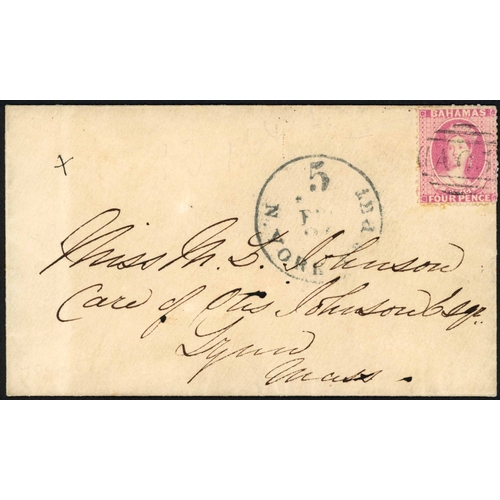 BAHAMAS
FOUR PENCE
x
5
N. YORK
Miss M. L. Johnson
Care of Otis Johnson Esqr
Lynn
Mass.